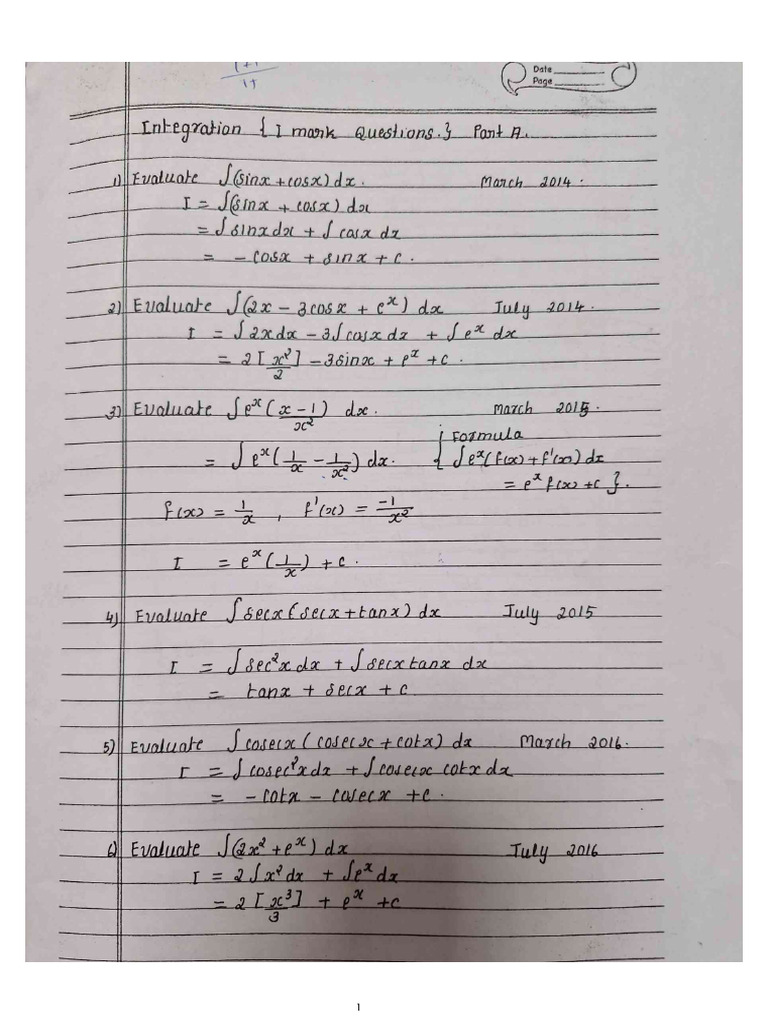 Date
Page
Integration { I mark Questions. } Part A.
1) Evaluate ∫(sinx + cosx) dx. March 2014.
I = ∫(sinx + cosx) dx
= ∫ sinx dx + ∫ cosx dx
= - cosx + sinx + c.
2) Evaluate ∫(2x - 3cosx + e^x) dx July 2014.
I = ∫ 2x dx - 3∫ cosx dx + ∫ e^x dx
= 2 [x²/2] - 3sinx + e^x + c.
3) Evaluate ∫ e^x (x-1/x²) dx. March 2015.
= ∫ e^x (1/x - 1/x²) dx. { Formula ∫ e^x (f(x) + f'(x)) dx
= e^x f(x) + c }.
f(x) = 1/x , f'(x) = -1/x²
I = e^x (1/x) + c.
4) Evaluate ∫ secx (secx + tanx) dx July 2015
I = ∫ sec²x dx + ∫ secx tanx dx
= tanx + secx + c
5) Evaluate ∫ cosecx (cosecx + cotx) dx March 2016.
I = ∫ cosec²x dx + ∫ cosecx cotx dx
= - cotx - cosecx + c.
6) Evaluate ∫(2x² + e^x) dx July 2016
I = 2 ∫ x² dx + ∫ e^x dx
= 2 [x³/3] + e^x + c
1